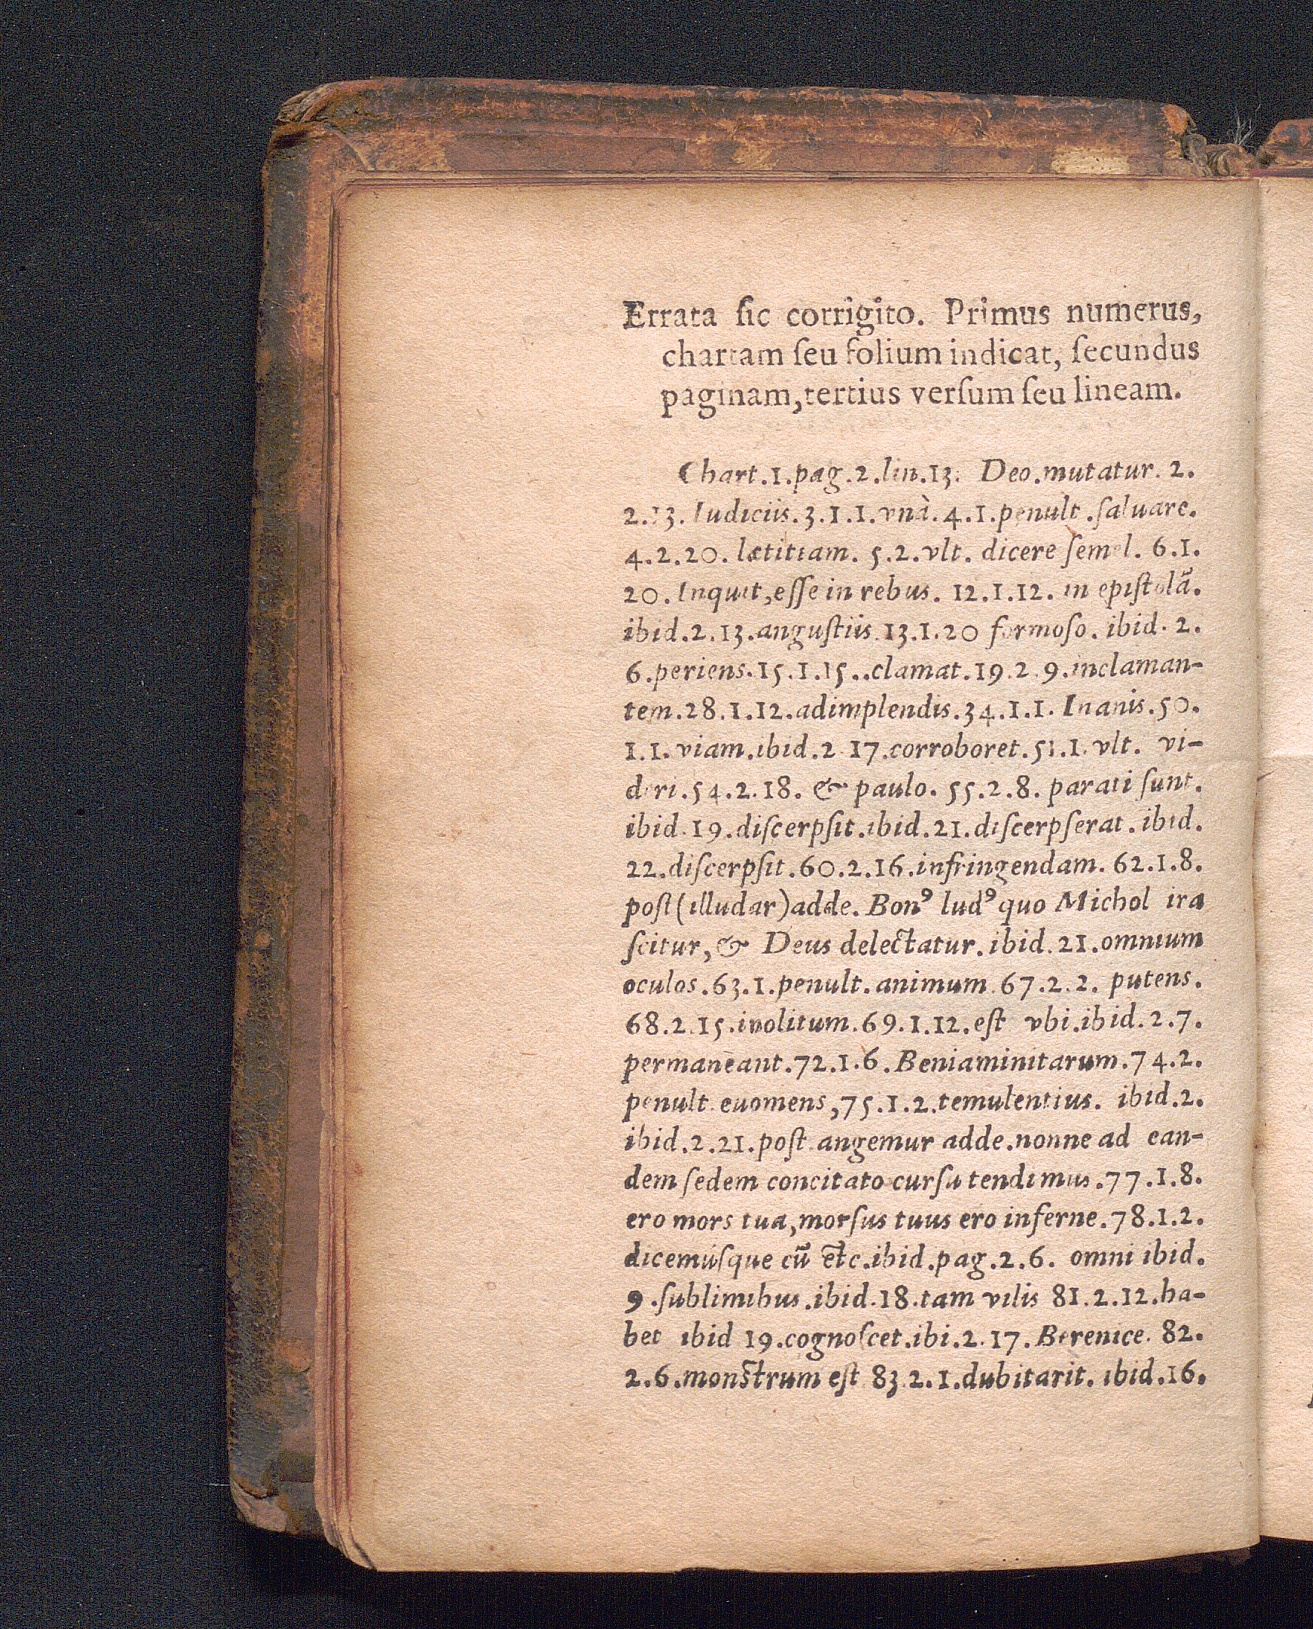 Errata ſic corrigito. Primus numerus,
chartam ſeu folium indicat, ſecundus
paginam, tertius verſum ſeu lineam.
Chart.1.pag.2.lin.13. Deo.mutatur. 2.
2.13. Iudiciis.3.1.1.vnà.4.1.penult.ſaluare.
4.2.20. lætitiam. 5.2.vlt. dicere ſemel. 6.1.
20.Inquit,eſſe in rebus. 12.1.12. in epiſtolā.
ibid.2.13.anguſtiis.13.1.20 formoſo. ibid. 2.
6.periens.15.1.15..clamat.19.2.9.inclaman-
tem.28.1.12.adimplendis.34.1.1. Inanis.50.
1.1. viam.ibid.2 17.corroboret.51.1.vlt. vi-
deri.54.2.18. & paulo. 55.2.8. parati ſunt.
ibid.19.diſcerpſit.ibid.21.diſcerpſerat.ibid.
22.diſcerpſit.60.2.16.infringendam. 62.1.8.
poſt(illudar)adde. Bonꝰ ludꝰ quo Michol ira
ſcitur,& Deus delectatur.ibid.21.omnium
oculos.63.1.penult.animum 67.2.2. putens.
68.2.15.inolitum.69.1.12.eſt vbi.ibid.2.7.
permaneant.72.1.6.Beniaminitarum.74.2.
penult.euomens,75.1.2.temulentius. ibid.2.
ibid.2.21.poſt angemur adde.nonne ad ean-
dem ſedem concitato curſu tendimus.77.1.8.
ero mors tua,morſus tuus ero inferne.78.1.2.
dicemúſque cū etc.ibid.pag.2.6. omni ibid.
9.ſublimibus.ibid.18.tam vilis 81.2.12.ha-
bet ibid 19.cognoſcet.ibi.2.17.Berenice. 82.
2.6.monſtrum eſt 83 2.1.dubitarit. ibid.16.